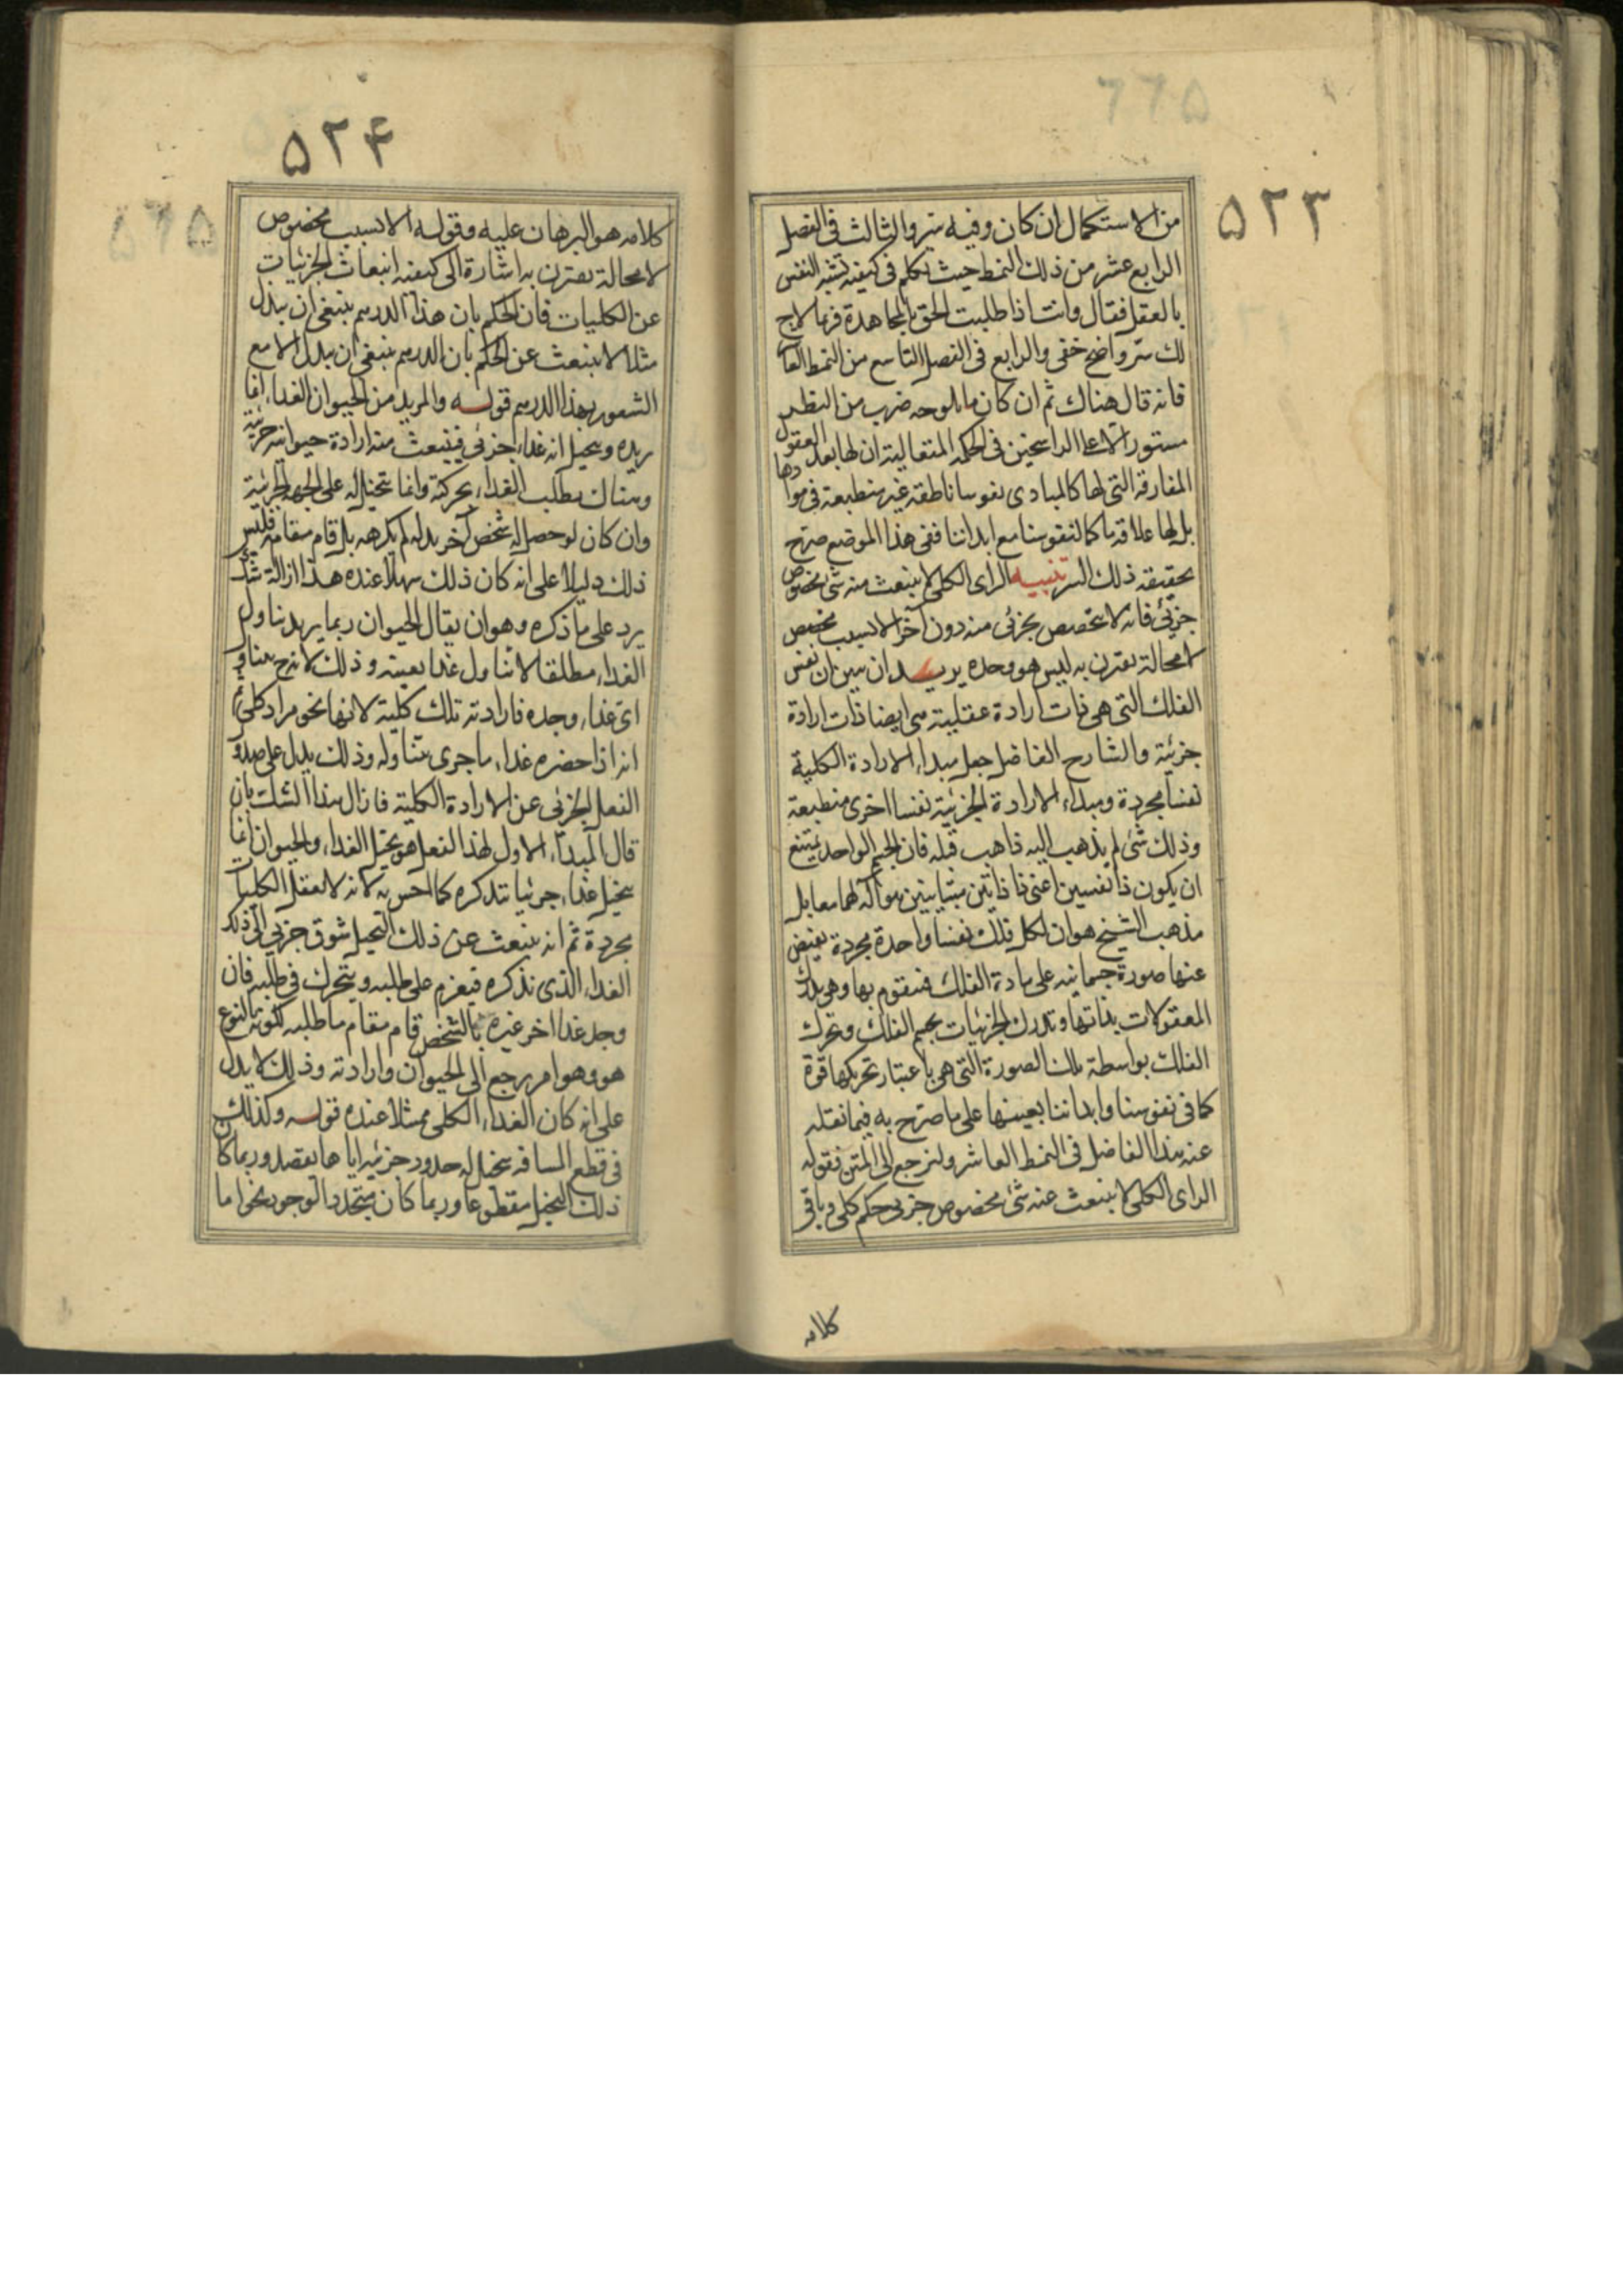 ۵۲۳
من الاستكمال ان كان وفيه سر والثالث فى الفصل
الرابع عشر من ذلك النمط حيث تكلم فى كيفية تشبه النفس
بالعقل فقال وانت اذا طلبت الحق بالمجاهدة فربما لاح
لك سر واضح خفى والرابع فى الفصل التاسع من النمط العا
فانه قال هناك ثم ان كان ما يلوحه ضرب من النظر
مستورا الا على الراسخين فى الحكمة المتعالية ان لها بعد العقول
المفارقة التى لها كالمبادى نفوسا ناطقة غير منطبعة فى موادها
بل لها علاقة ما كما لنفوسنا مع ابداننا ففى هذا الموضع صرح
بحقيقة ذلك السر تنبيه الراى الكلى لا ينبعث منه شئ مخصوص
جزئى فانه لا يتخصص بجزئى منه دون آخر الا لسبب مخصص
لا محالة يقترن به ليس هو وحده يريد ان يبين ان نفس
الفلك التى هى ذات ارادة عقلية هى ايضا ذات ارادة
جزئية والشارح الفاضل جعل مبداء الارادة الكلية
نفسا مجردة ومبداء الارادة الجزئية نفسا اخرى منطبعة
وذلك شئ لم يذهب اليه ذاهب قبله فان الجسم الواحد يمتنع
ان يكون ذا نفسين اعنى ذا ذاتين متباينين هو آلة لهما معا بل
مذهب الشيخ هو ان لكل فلك نفسا واحدة مجردة يفيض
عنها صورة جسمانية على مادة الفلك فتقوم بها وهى تدرك
المعقولات بذاتها وتدرك الجزئيات بجسم الفلك وتحرك
الفلك بواسطة تلك الصورة التى هى باعتبار تحريكها قوة
كما فى نفوسنا وابداننا بعينها على ما صرح به فيما نقله
عنه هذا الفاضل فى النمط العاشر ولنرجع الى المتن فقوله
الراى الكلى لا ينبعث عنه شئ مخصوص جزئى حكم كلى وباقى
كلامه
۵۲۴
كلامه هو البرهان عليه وقوله الا لسبب مخصوص
لا محالة يقترن به اشارة الى كيفية انبعاث الجزئيات
عن الكليات فان الحكم بان هذا الدرهم ينبغى ان يبذل
مثلا لا ينبعث عن الحكم بان الدرهم ينبغى ان يبذل الا مع
الشعور بهذا الدرهم قوله والمريد من الحيوان الغذاء انما
يريده ويتخيل انه غذاء جزئى فينبعث منه ارادة حيوانية جزئية
وهناك يطلب الغذاء بحركته وانما يتخيل له على الجهة الجزئية
وان كان لو حصل له شخص آخر بدله لم يكرهه بل قام مقامه فليس
ذلك دليلا على انه كان ذلك مثلا عنده هذا ازالة شك
يرد على ما ذكره وهو ان يقال الحيوان ربما يريد تناول
الغذاء مطلقا لا تناول غذا بعينه وذلك لانه
اى غذاء وجده فارادته تلك كلية لانها نحو مراد كلى
انه اذا حضره غذاء ما جرى تناوله وذلك يدل على صدو
الفعل الجزئى عن الارادة الكلية فازال هذا الشك بان
قال المبداء الاول لهذا الفعل هو تخيل الغذاء والحيوان انما
يتخيل غذاء جزئيا يتذكره كما احس به لانه لا يعقل الكليات
مجردة ثم انه ينبعث عن ذلك التخيل شوق جزئى الى ذلك
الغذاء الذى تذكره فيعزم على طلبه ويتحرك فى طلبه فان
وجد غذا اخر غيره بالشخص قام مقام ما طلبه لكونه بالنوع
هو وهو امر يرجع الى الحيوان وارادته وذلك لا يدل
على انه كان الغذاء الكلى ممثلا عنده قوله وكذلك
فى قطع المسافة يتخيل له حدود جزئية اياها يقصد وربما كان
ذلك التخيل مقطوعا وربما كان متجدد الوجود نحوا ما